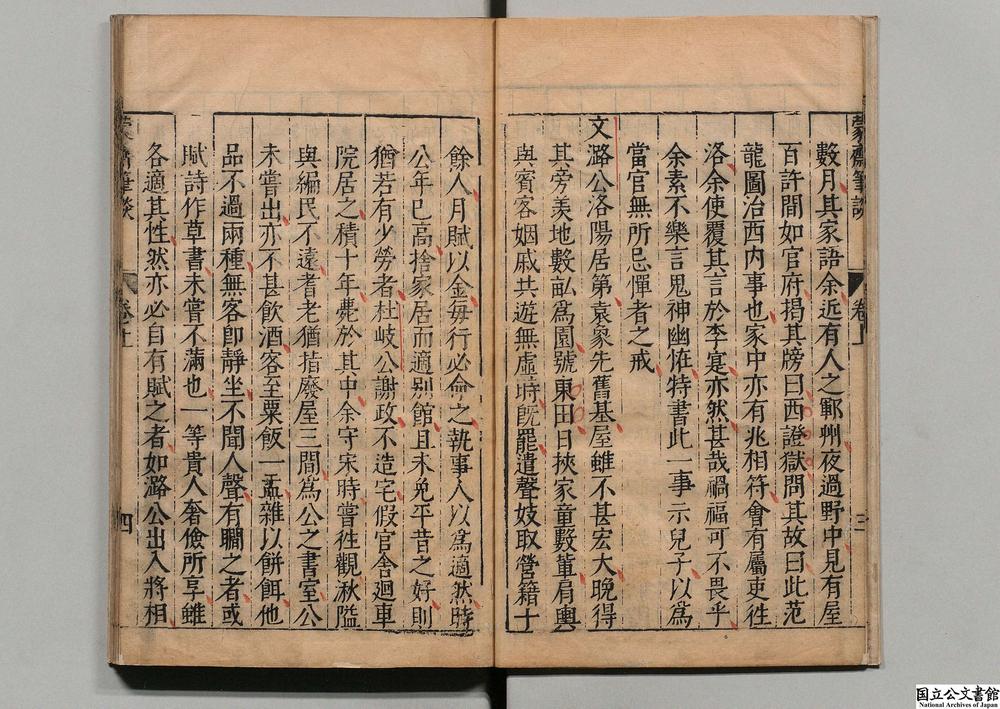 蒙齋筆談
卷上
三
數月其家語余近有人之鄆州夜過野中見有屋
百許間如官府揭其牓曰西證獄問其故曰此范
龍圖治西內事也家中亦有兆相符會有屬吏往
洛余使覆其言於李寔亦然甚哉禍福可不畏乎
余素不樂言鬼神幽恠特書此一事示兒子以爲
當官無所忌憚者之戒
文潞公洛陽居第袁象先舊基屋雖不甚宏大晚得
其旁羨地數畝爲園號東田日挾家童數輩肩輿
與賓客姻戚共遊無虛時旣罷遣聲妓取營籍十
餘人月賦以金每行必命之執事人以爲適然時
公年已高捨家居而適别館且未免平昔之好則
猶若有少勞者杜岐公謝政不造宅假官舍迴車
院居之積十年薨於其中余守宋時嘗徃觀湫隘
與編民不遠耆老猶指廢屋三間爲公之書室公
未嘗出亦不甚飲酒客至粟飯一盂雜以餅餌他
品不過兩種無客卽靜坐不聞人聲有覵之者或
賦詩作草書未嘗不滿也一等貴人奢儉所享雖
各適其性然亦必自有賦之者如潞公出入將相
蒙齋筆談
卷上
四
国立公文書館
National Archives of Japan